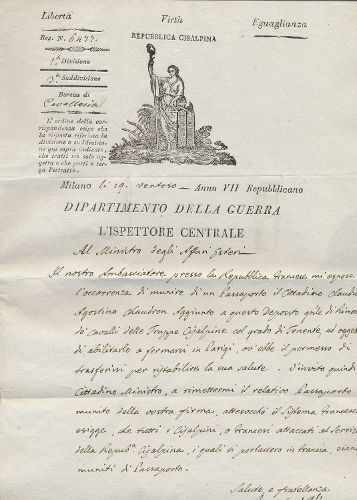 Libertà Virtù Eguaglianza
Reg. N.° 6477.
REPUBBLICA CISALPINA
1.a Divisione
3.a Suddivisione
Bureau di
Cavalleria
L'ordine della cor-
rispondenza esige che
la risposta riferisca la
divisione e suddivisio-
ne qui sopra indicate,
che tratti un solo og-
getto e che porti a ter-
go l'estratto.
Milano li 19. ventoso — Anno VII Repubblicano
DIPARTIMENTO DELLA GUERRA
L'ISPETTORE CENTRALE
Al Ministro degli Affari Esteri
Il nostro Ambasciatore presso la Repubblica francese mi espone
l'occorrenza di munire di un Passaporto il Cittadino Claudio
Agostino Aggiunto a questo Deposito gñle di
de' cavalli delle Truppe Cisalpine col grado di Tenente, ad oggetto
di abilitarlo a fermarsi in Parigi, ov' ebbe il permesso di
trasferirsi per ristabilire la sua salute. V'invito quindi
Cittadino Ministro, a rimettermi il relativo Passaporto
munito della vostra firma, attesocchè il Sistema francese
esigge, che tutti i Cisalpini, o francesi attaccati al Servizio
della Repub.a Cisalpina, i quali si portassero in francia, siano
muniti di Passaporto.
Salute, e fratellanza